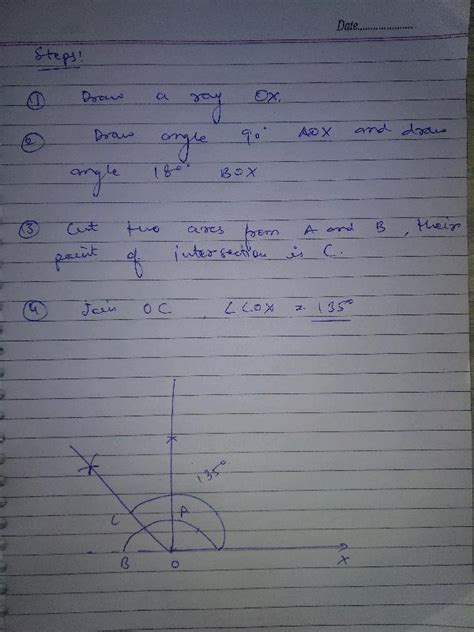 Date....................
Steps:
① Draw a ray OX.
② Draw angle 90° AOX and draw
angle 180° BOX
③ Cut two arcs from A and B, their
point of intersection is C.
④ Join OC ∠COX = 135°
135°
C
A
B O X